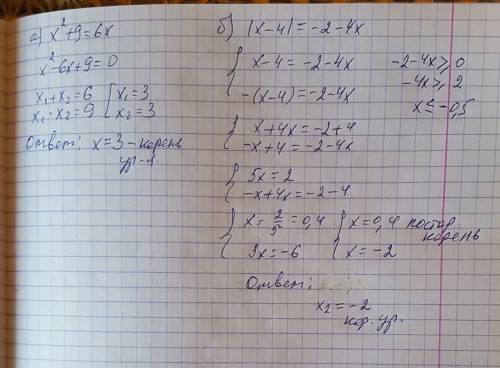 а) x²+9=6x
x²-6x+9=0
x₁+x₂=6 [x₁=3
x₁·x₂=9 [x₂=3
Ответ: x=3 - корень
ур-я.
б) |x-4|=-2-4x
{ x-4=-2-4x -2-4x⩾0
-(x-4)=-2-4x -4x⩾2
x≤-0,5
{ x+4x=-2+4
-x+4=-2-4x
{ 5x=2
-x+4x=-2-4
{ x=2/5=0,4 { x=0,4 постор.
корень
3x=-6 x=-2
Ответ:
x₂=-2
кор. ур.